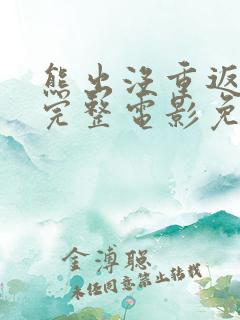 熊出没重返
完整电影免
金溥聪
未经同意禁止转载